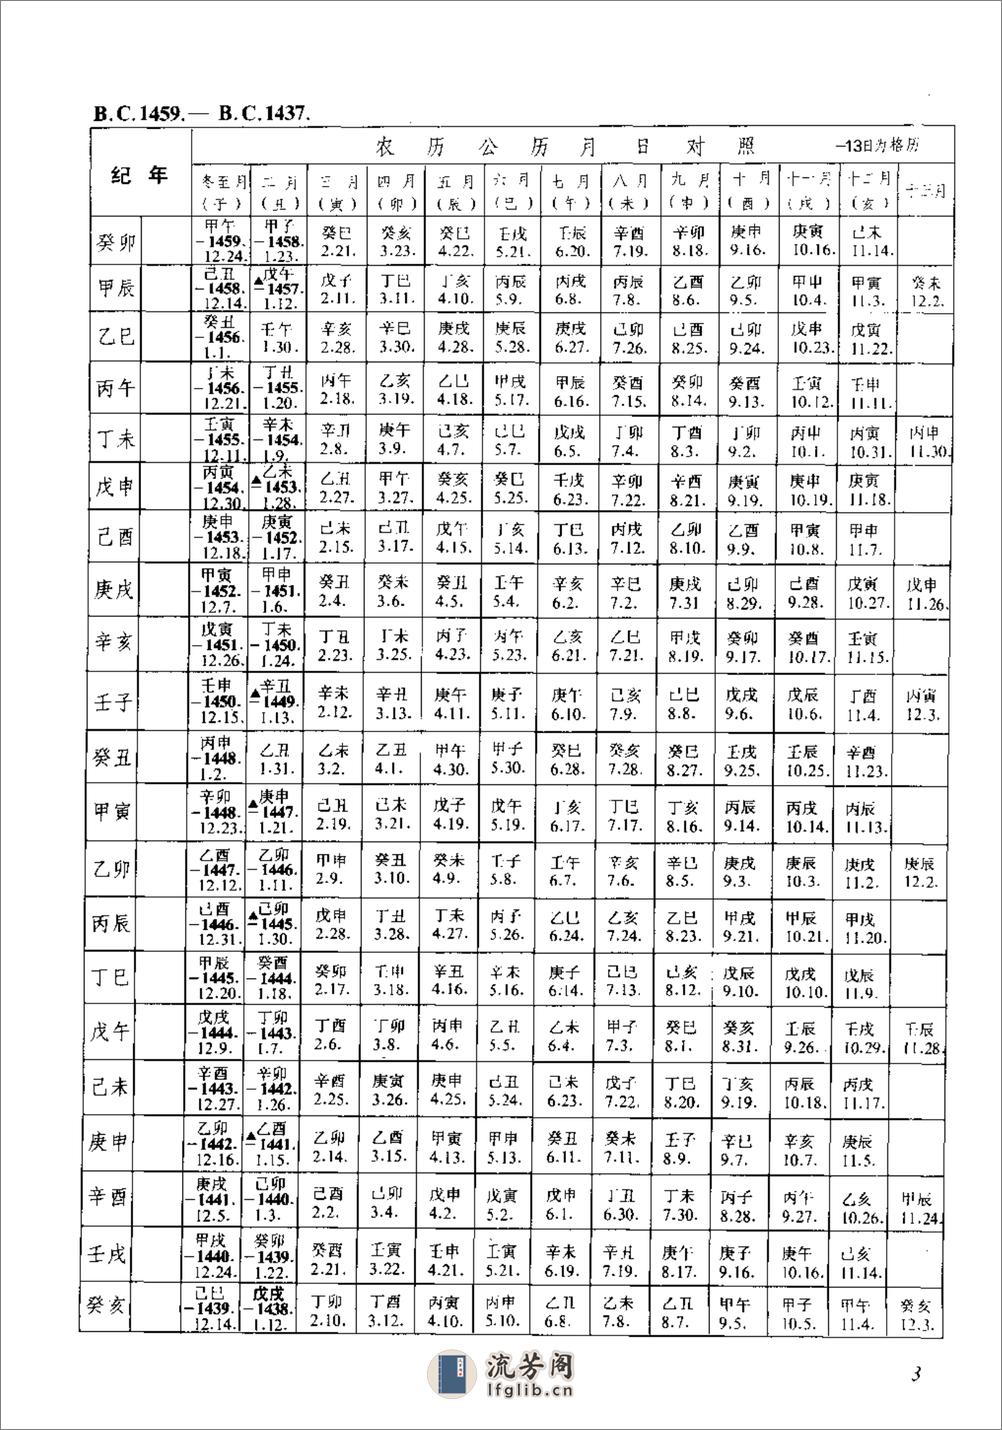 B.C.1459.— B.C.1437.
纪年 农历公历月日对照 —13日为格历
冬至月(子) 二月(丑) 三月(寅) 四月(卯) 五月(辰) 六月(巳) 七月(午) 八月(未) 九月(申) 十月(酉) 十一月(戌) 十二月(亥) 十三月
癸卯 甲午-1459.12.24. 甲子-1458.1.23. 癸巳2.21. 癸亥3.23. 癸巳4.22. 壬戌5.21. 壬辰6.20. 辛酉7.19. 辛卯8.18. 庚申9.16. 庚寅10.16. 己未11.14.
甲辰 己丑-1458.12.14. ▲戊午-1457.1.12. 戊子2.11. 丁巳3.11. 丁亥4.10. 丙辰5.9. 丙戌6.8. 丙辰7.8. 乙酉8.6. 乙卯9.5. 甲申10.4. 甲寅11.3. 癸未12.2.
乙巳 癸丑-1456.1.1. 壬午1.30. 辛亥2.28. 辛巳3.30. 庚戌4.28. 庚辰5.28. 庚戌6.27. 己卯7.26. 己酉8.25. 己卯9.24. 戊申10.23. 戊寅11.22.
丙午 丁未-1456.12.21. 丁丑-1455.1.20. 丙午2.18. 乙亥3.19. 乙巳4.18. 甲戌5.17. 甲辰6.16. 癸酉7.15. 癸卯8.14. 癸酉9.13. 壬寅10.12. 壬申11.11.
丁未 壬寅-1455.12.11. 辛未-1454.1.9. 辛丑2.8. 庚午3.9. 己亥4.7. 己巳5.7. 戊戌6.5. 丁卯7.4. 丁酉8.3. 丁卯9.2. 丙申10.1. 丙寅10.31. 丙申11.30.
戊申 丙寅-1454.12.30. ▲乙未-1453.1.28. 乙丑2.27. 甲午3.27. 癸亥4.25. 癸巳5.25. 壬戌6.23. 辛卯7.22. 辛酉8.21. 庚寅9.19. 庚申10.19. 庚寅11.18.
己酉 庚申-1453.12.18. 庚寅-1452.1.17. 己未2.15. 己丑3.17. 戊午4.15. 丁亥5.14. 丁巳6.13. 丙戌7.12. 乙卯8.10. 乙酉9.9. 甲寅10.8. 甲申11.7.
庚戌 甲寅-1452.12.7. 甲申-1451.1.6. 癸丑2.4. 癸未3.6. 癸丑4.5. 壬午5.4. 辛亥6.2. 辛巳7.2. 庚戌7.31 己卯8.29. 己酉9.28. 戊寅10.27. 戊申11.26.
辛亥 戊寅-1451.12.26. 丁未-1450.1.24. 丁丑2.23. 丁未3.25. 丙子4.23. 丙午5.23. 乙亥6.21. 乙巳7.21. 甲戌8.19. 癸卯9.17. 癸酉10.17. 壬寅11.15.
壬子 壬申-1450.12.15. ▲辛丑-1449.1.13. 辛未2.12. 辛丑3.13. 庚午4.11. 庚子5.11. 庚午6.10. 己亥7.9. 己巳8.8. 戊戌9.6. 戊辰10.6. 丁酉11.4. 丙寅12.3.
癸丑 丙申-1448.1.2. 乙丑1.31. 乙未3.2. 乙丑4.1. 甲午4.30. 甲子5.30. 癸巳6.28. 癸亥7.28. 癸巳8.27. 壬戌9.25. 壬辰10.25. 辛酉11.23.
甲寅 辛卯-1448.12.23. ▲庚申-1447.1.21. 己丑2.19. 己未3.21. 戊子4.19. 戊午5.19. 丁亥6.17. 丁巳7.17. 丁亥8.16. 丙辰9.14. 丙戌10.14. 丙辰11.13.
乙卯 乙酉-1447.12.12. 乙卯-1446.1.11. 甲申2.9. 癸丑3.10. 癸未4.9. 壬子5.8. 壬午6.7. 辛亥7.6. 辛巳8.5. 庚戌9.3. 庚辰10.3. 庚戌11.2. 庚辰12.2.
丙辰 己酉-1446.12.31. ▲己卯-1445.1.30. 戊申2.28. 丁丑3.28. 丁未4.27. 丙子5.26. 乙巳6.24. 乙亥7.24. 乙巳8.23. 甲戌9.21. 甲辰10.21. 甲戌11.20.
丁巳 甲辰-1445.12.20. 癸酉-1444.1.18. 癸卯2.17. 壬申3.18. 辛丑4.16. 辛未5.16. 庚子6.14. 己巳7.13. 己亥8.12. 戊辰9.10. 戊戌10.10. 戊辰11.9.
戊午 戊戌-1444.12.9. 丁卯-1443.1.7. 丁酉2.6. 丁卯3.8. 丙申4.6. 乙丑5.5. 乙未6.4. 甲子7.3. 癸巳8.1. 癸亥8.31. 壬辰9.26. 壬戌10.29. 壬辰11.28.
己未 辛酉-1443.12.27. 辛卯-1442.1.26. 辛酉2.25. 庚寅3.26. 庚申4.25. 己丑5.24. 己未6.23. 戊子7.22. 丁巳8.20. 丁亥9.19. 丙辰10.18. 丙戌11.17.
庚申 乙卯-1442.12.16. ▲乙酉-1441.1.15. 乙卯2.14. 乙酉3.15. 甲寅4.13. 甲申5.13. 癸丑6.11. 癸未7.11. 壬子8.9. 辛巳9.7. 辛亥10.7. 庚辰11.5.
辛酉 庚戌-1441.12.5. 己卯-1440.1.3. 己酉2.2. 己卯3.4. 戊申4.2. 戊寅5.2. 戊申6.1. 丁丑6.30. 丁未7.30. 丙子8.28. 丙午9.27. 乙亥10.26. 甲辰11.24.
壬戌 甲戌-1440.12.24. 癸卯-1439.1.22. 癸酉2.21. 壬寅3.22. 壬申4.21. 壬寅5.21. 辛未6.19. 辛丑7.19. 庚午8.17. 庚子9.16. 庚午10.16. 己亥11.14.
癸亥 己巳-1439.12.14. 戊戌-1438.1.12. 丁卯2.10. 丁酉3.12. 丙寅4.10. 丙申5.10. 乙丑6.8. 乙未7.8. 乙丑8.7. 甲午9.5. 甲子10.5. 甲午11.4. 癸亥12.3.
流芳阁
lfglib.cn
3